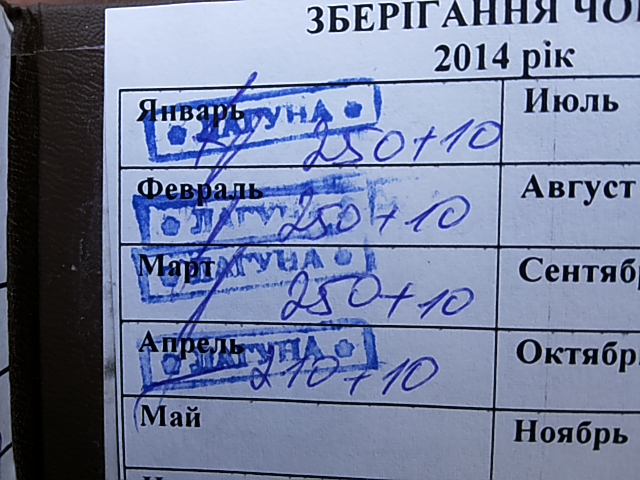 ЗБЕРІГАННЯ ЧО
2014 рік
Январь ЛАГУНА 250+10 Июль
Февраль ЛАГУНА 250+10 Август
Март ЛАГУНА 250+10 Сентяб
Апрель ЛАГУНА 210+10 Октябр
Май Ноябрь